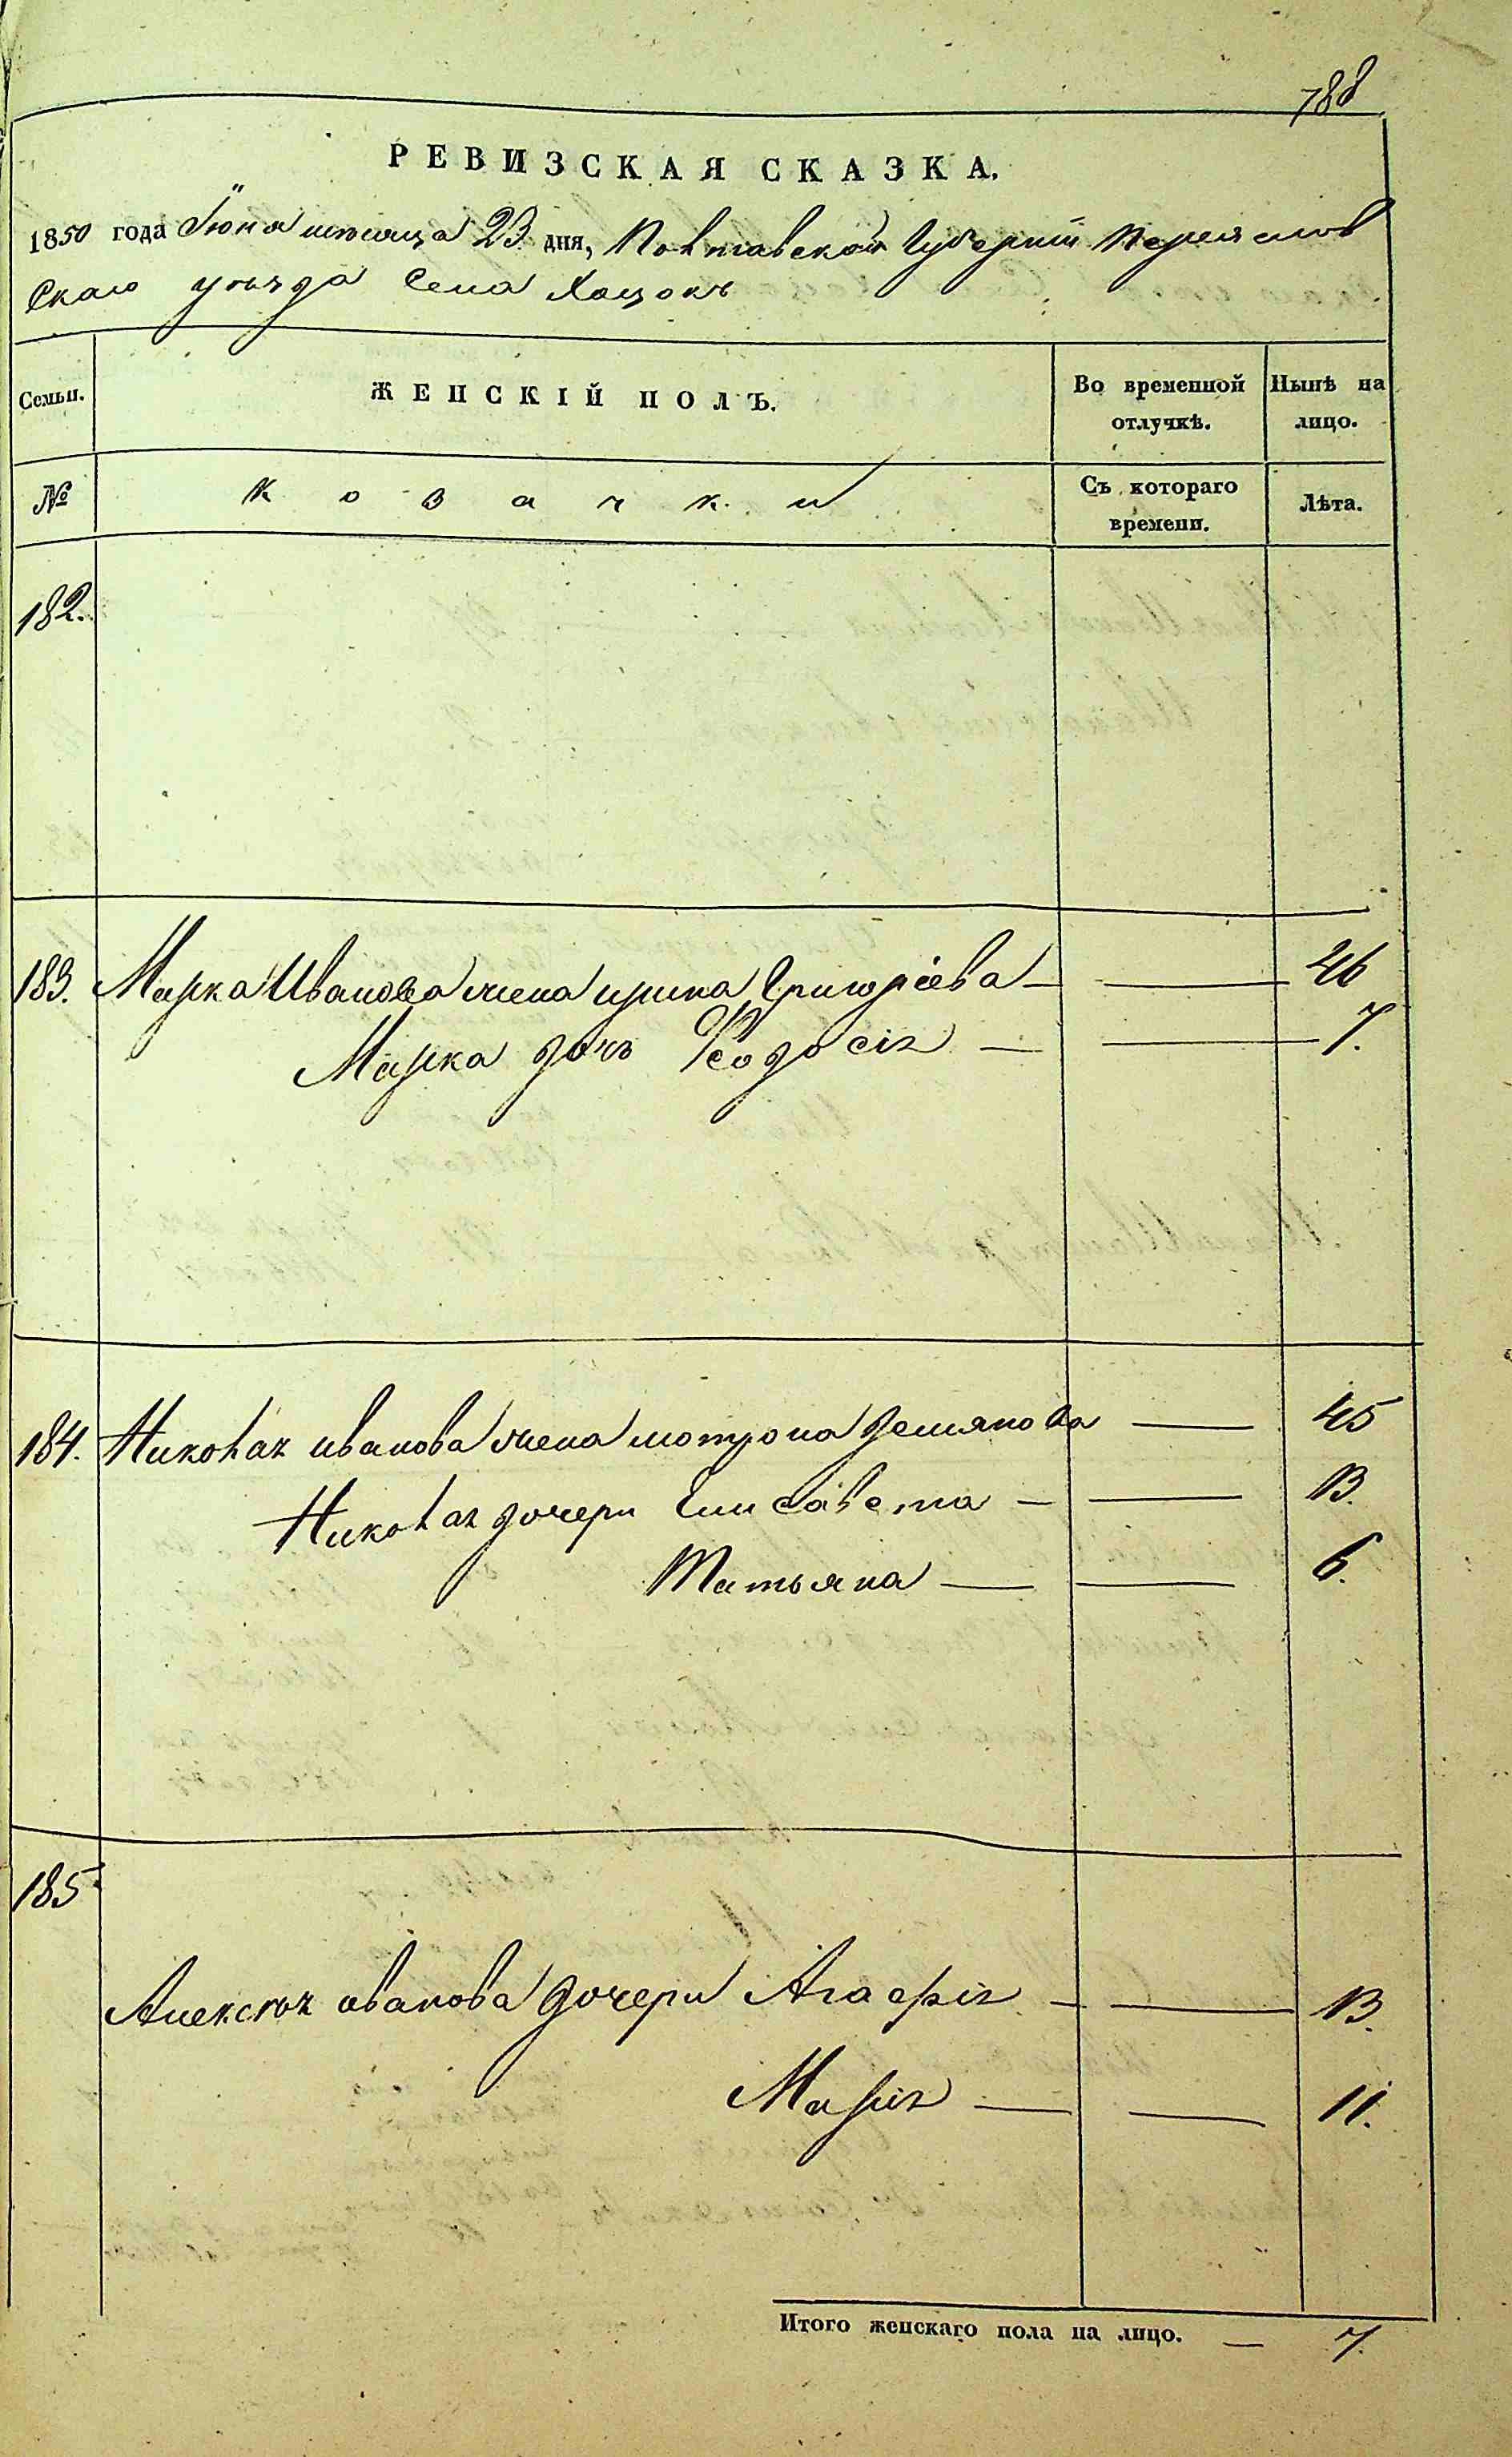 788
РЕВИЗСКАЯ СКАЗКА.
1850 года Іюня мѣсяца 23 дня, Полтавской Губерніи Переяслов
Скаго уѣзда Села Хоцокъ
Семьи. ЖЕНСКІЙ ПОЛЪ. Во временной отлучкѣ. Нынѣ на лицо.
№ Козачки Съ котораго времени. Лѣта.
182.
183. Марка Иванова жена ирина Григоріева — — 46
Марка дочь Феодосія — — 7.
184. Николая иванова жена мотрона Демянова — 45
Николая дочери Елисавета — — 13.
Татьяна — — 6.
185
Алексѣя иванова дочери Агафія — — 13.
Марія — — 11.
Итого женскаго пола на лицо. — 7.